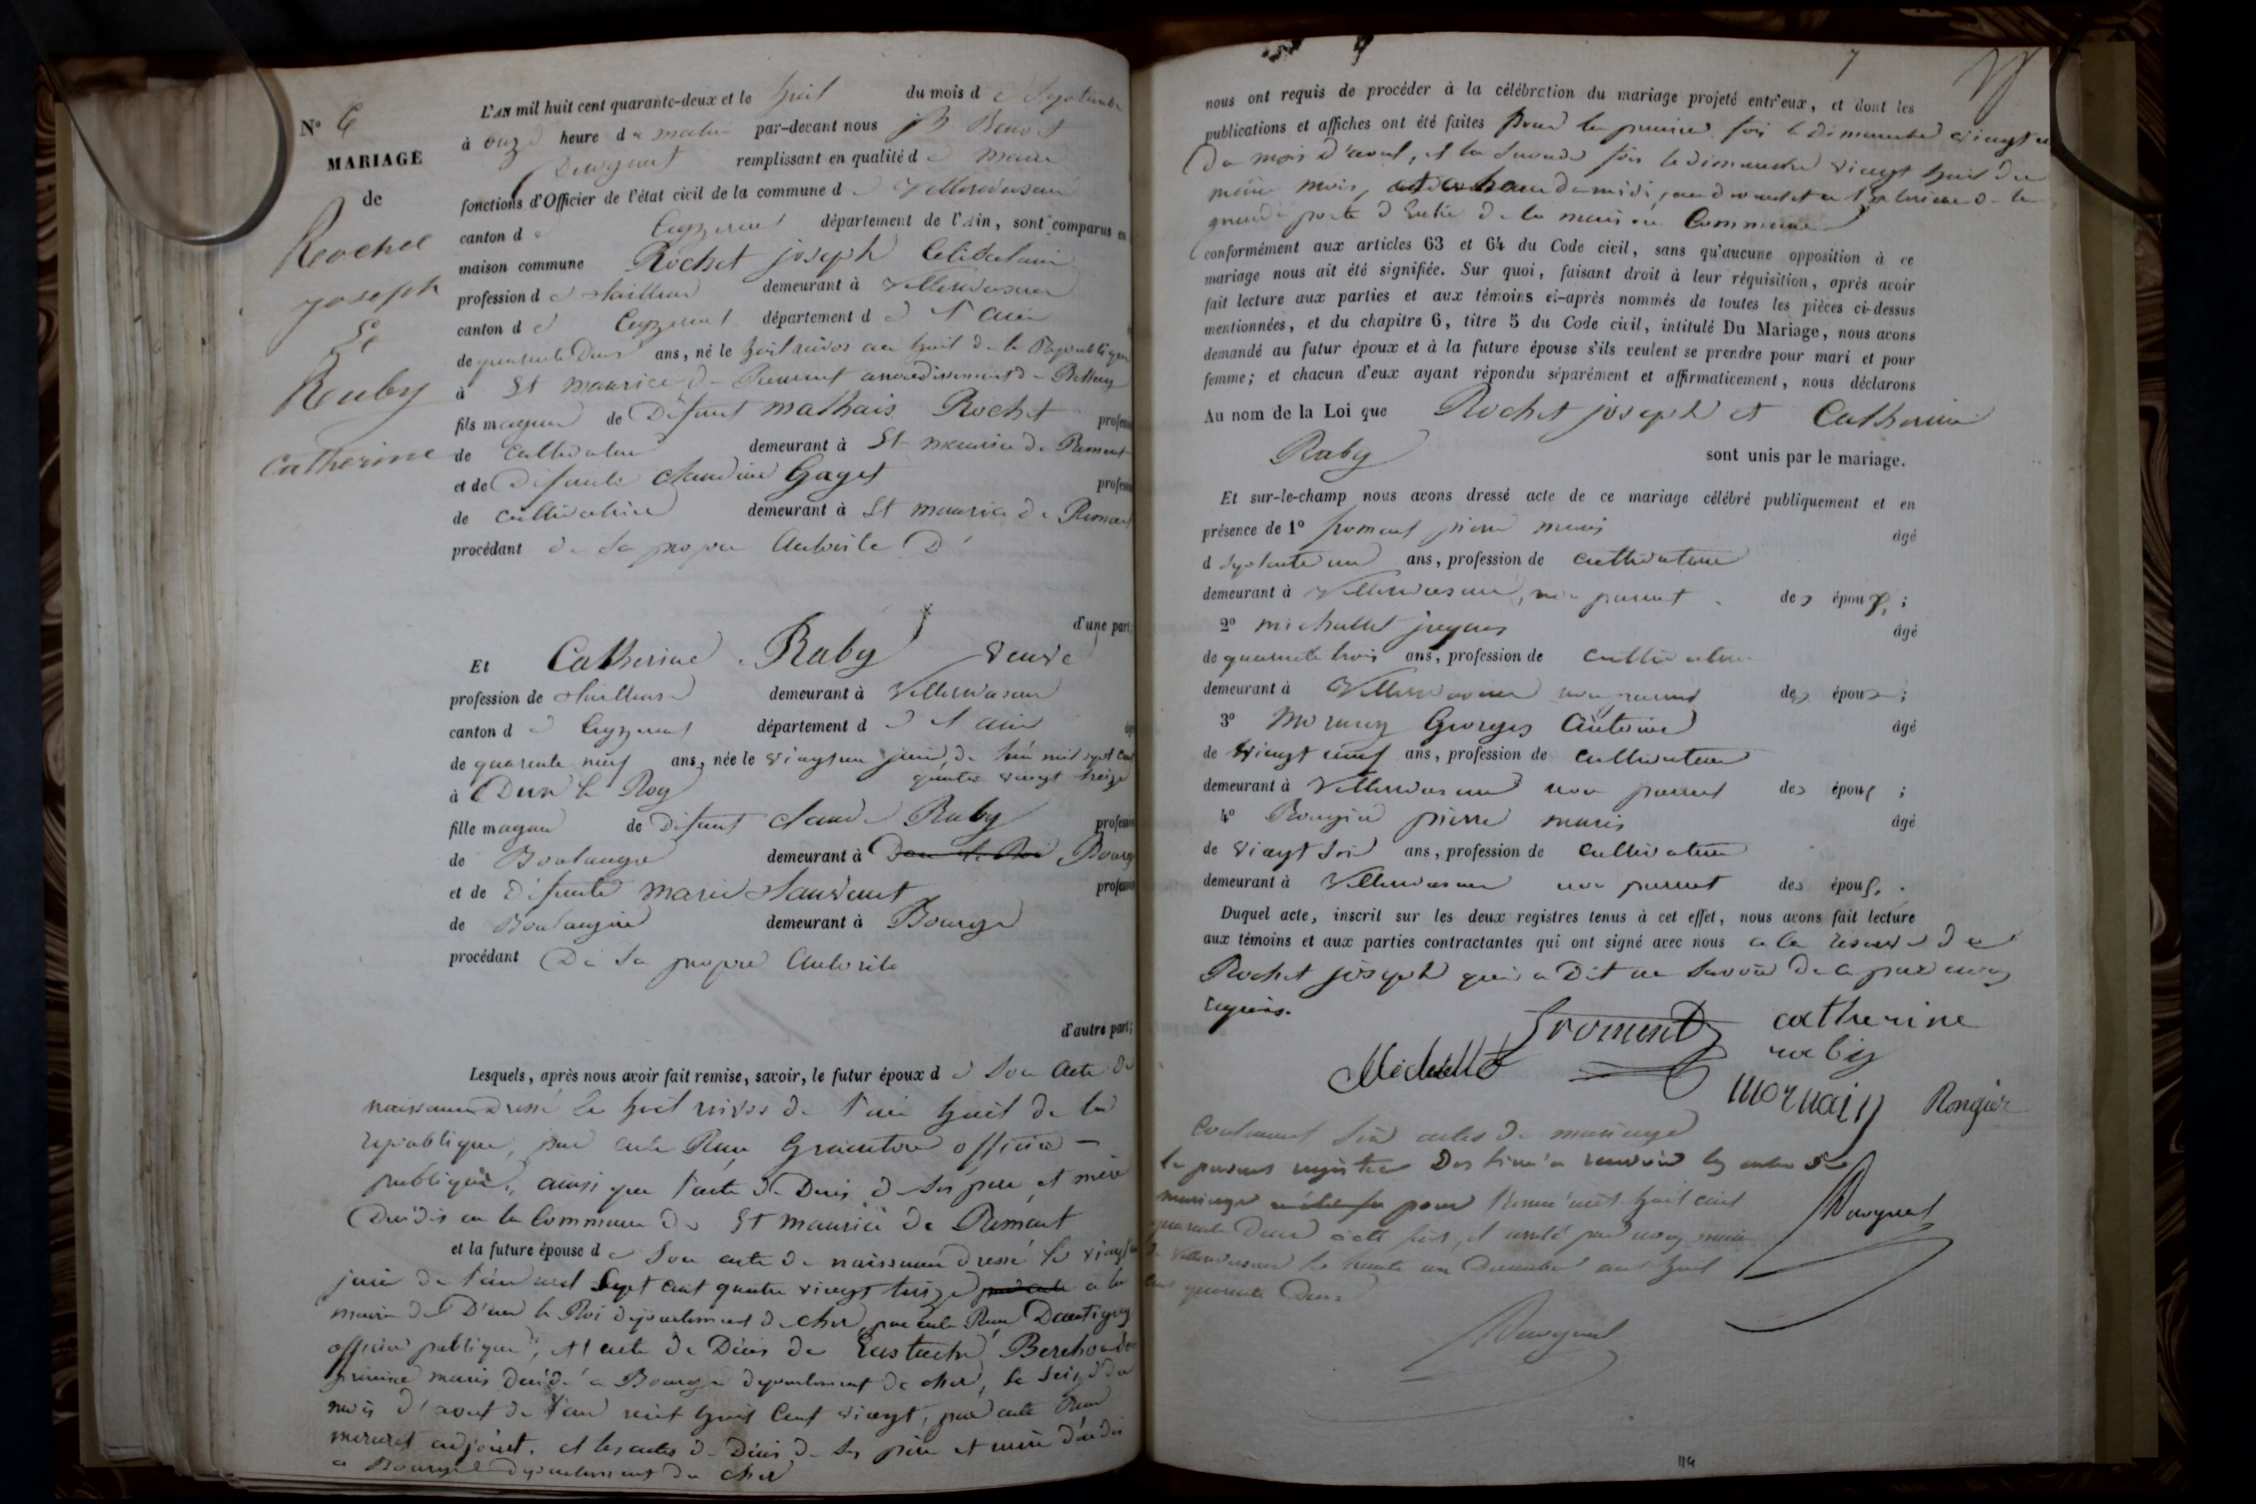 N° 6
MARIAGE
de
Rochet
joseph
&
Raby
Catherine
L'AN mil huit cent quarante-deux et le huit du mois de Septembre
à onze heure du matin par-devant nous Benoit
remplissant en qualité de maire
fonctions d'Officier de l'état civil de la commune de Villereversure
canton de Ceyzeriat département de l'Ain, sont comparus en
maison commune Rochet joseph Celibataire
profession de Tailleur demeurant à Villereversure
canton de Ceyzeriat département de l'ain
de quarante Deux ans, né le huit nivos an huit de la Republique
à St maurice de Remont arrondissement de Belley
fils mageur de Défunt mathais Rochet profession
de Cultivateur demeurant à St maurice de Remont
et de Défunte claudine Gaget profession
de cultivatrice demeurant à St maurice de Remont
procédant de sa propre Autorite D'
d'une part;
Et Catherine Raby veuve
profession de Tailleuse demeurant à Villereversure
canton de Ceyzeriat département de l'ain
de quarante neuf ans, née le vingt un juin de l'an mil sept cent
quatre vingt treize
à Dun le Roy
fille mageur de Défunt claude Raby profession
de Boulanger demeurant à Bourge
et de défunte marie profession
de Boulangère demeurant à Bourge
procédant De sa propre Autorite
d'autre part;
Lesquels, après nous avoir fait remise, savoir, le futur époux de Son Acte de
naissance dressé le huit nivos de l'an huit de la
republique, par acte Reçu officier
publique, ainsi que l'acte de Décès de ses père et mère
Decédés en la Commune de St maurice de Remont
et la future épouse de Son acte de naissance dressé le vingt
juin de l'an mil Sept cent quatre vingt treize a la
mairie de Dun le Roi département du cher, par acte Reçu
officier publique, et l'acte de Décès de Eustache
premier maris decédé a Bourge département de cher, le seize du
mois d'aout de l'an mil huit Cent vingt, par acte Reçu
adjoint, et les actes de Décès de ses père et mère décédés
a Bourge département du cher
7
nous ont requis de procéder à la célébration du mariage projeté entr'eux, et dont les
publications et affiches ont été faites Pour la premiere fois le dimanche vingt un
du mois d'aout, et la seconde fois le dimanche vingt huit du
même mois, de midi, au devant et a l'exterieure de la
grande porte d'Entré de la maison Commune
conformément aux articles 63 et 64 du Code civil, sans qu'aucune opposition à ce
mariage nous ait été signifiée. Sur quoi, faisant droit à leur réquisition, après avoir
fait lecture aux parties et aux témoins ci-après nommés de toutes les pièces ci-dessus
mentionnées, et du chapitre 6, titre 5 du Code civil, intitulé Du Mariage, nous avons
demandé au futur époux et à la future épouse s'ils veulent se prendre pour mari et pour
femme; et chacun d'eux ayant répondu séparément et affirmativement, nous déclarons
Au nom de la Loi que Rochet joseph et Catherine
Raby sont unis par le mariage.
Et sur-le-champ nous avons dressé acte de ce mariage célébré publiquement et en
présence de 1° froment pierre maris âgé
d ans, profession de cultivateur
demeurant à Villereversure, non parent des époux;
2° michallet jaques âgé
de quarante trois ans, profession de cultivateur
demeurant à Villereversure non parent des époux;
3° Mornay Georges Antoine âgé
de vingt neuf ans, profession de cultivateur
demeurant à Villereversure non parent des époux;
4° Rongier pierre maris âgé
de vingt Six ans, profession de cultivateur
demeurant à Villereversure non parent des époux.
Duquel acte, inscrit sur les deux registres tenus à cet effet, nous avons fait lecture
aux témoins et aux parties contractantes qui ont signé avec nous a la reserve de
Rochet joseph qui a Dit ne Savoir de ce par nous
requis.
froment catherine
raby
Michallet
mornain Rongier
Contenant Six actes de mariage
le present registre Destiné a recevoir les actes de
mariage pour l'année mil huit cent
quarante Deux a été clos, et arreté par nous maire
de Villereversure le trente un Decembre mil huit
cent quarante Deux
114